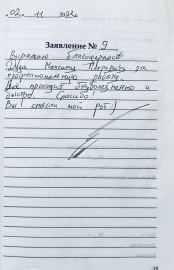 02. 11 2023г.
Заявление № 9
Выражаю благодарность
Максиму Петровичу за
профессиональную работу.
Все проходит безболезненно и
быстро. Спасибо!
Вы спасли мой рот :)